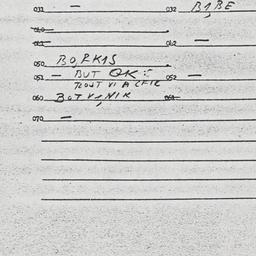 031 — 032 B1, BE
040
041 — 042 —
050 BO, RK1S
051 — BUT OK : 052 —
TROUT VIA CFIC
060 BOT V1, NIK 061
070 —